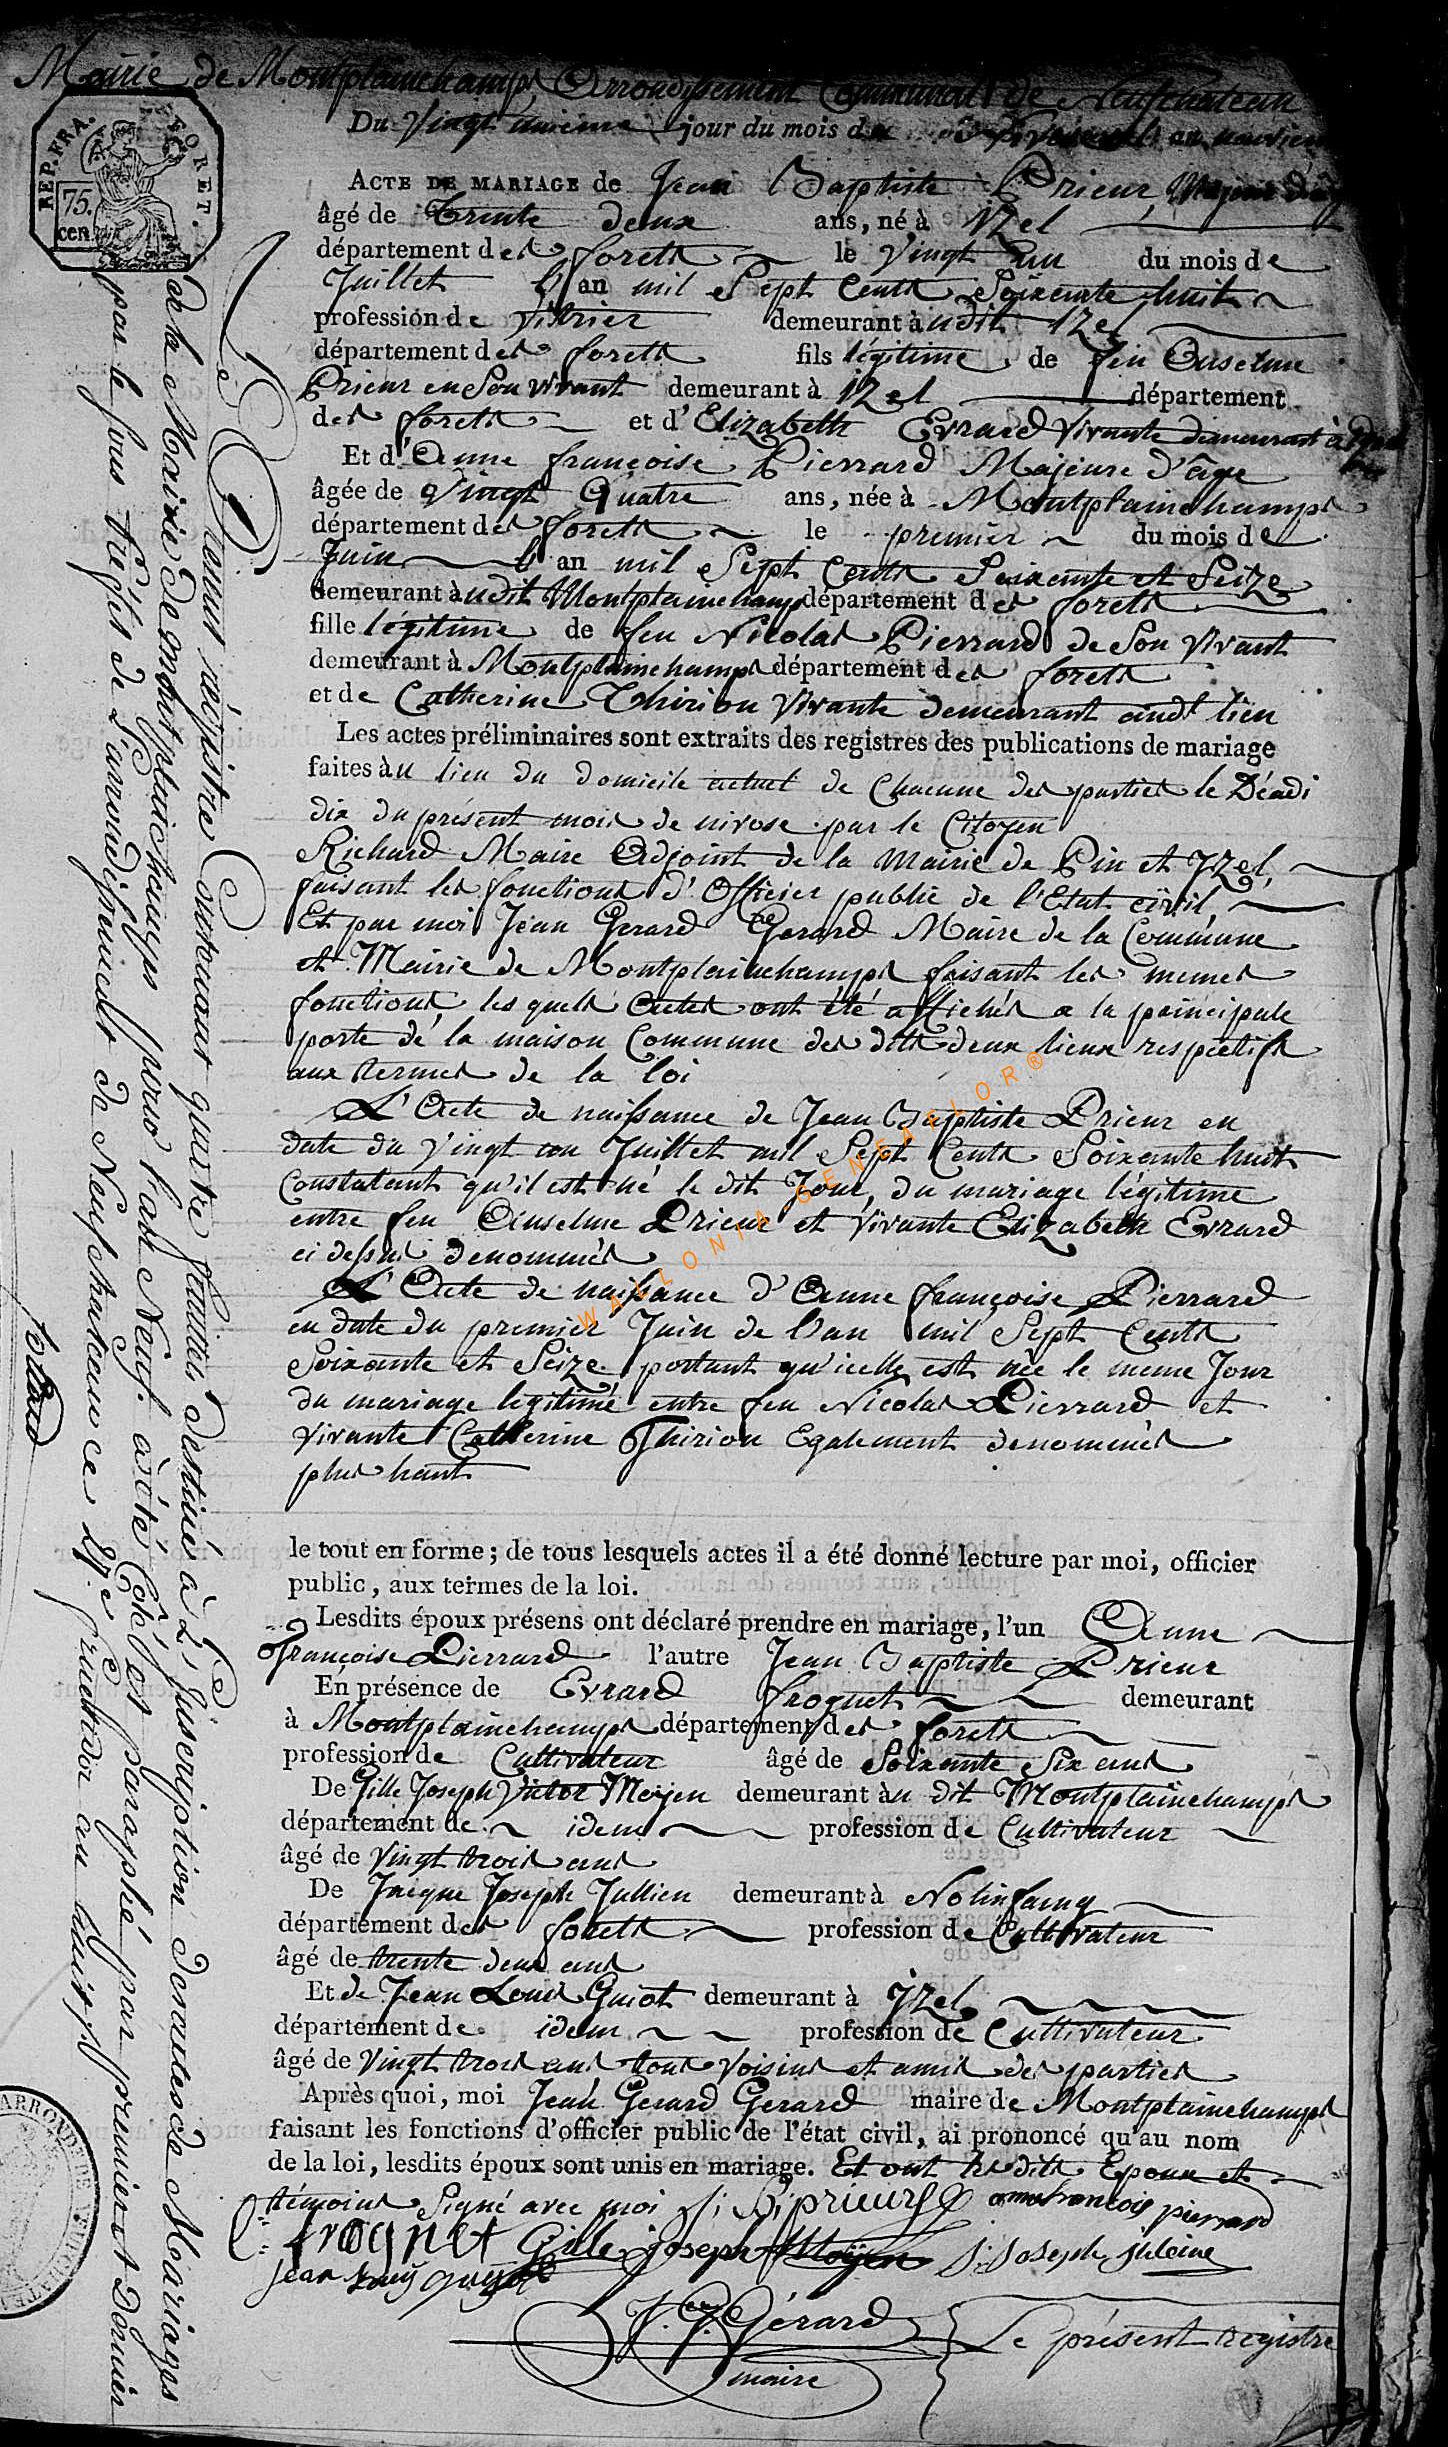 Mairie de Montplainchamps Arrondissement Communal de Neufchateau
Du Vingt unieme jour du mois de nivose an neuvieme
REP. FRA. FORET.
75. cen.
ACTE DE MARIAGE de Jean Baptiste Prieur Majeur d'age
âgé de trente deux ans, né à Yzel
département des forets le Vingt un du mois de
Juillet l'an mil Sept Cents Soixente huit
profession de Vitrier demeurant àudit Izel
département des forets fils légitime de feu Anselme
Prieur en Son vivant demeurant à izel département
des forets et d'Elizabeth Evrard Vivante demeurant à Yzel
Et d'Anne françoise Pierrard Majeure d'âge
âgée de Vingt Quatre ans, née à Montplainchamps
département des forets le premier du mois de
Juin l'an mil Sept Cents Soixente et Seize
demeurant àudit Montplainchamps département des forets
fille légitime de feu Nicolas Pierrard de Son Vivant
demeurant à Montplainchamps département des forets
et de Catherine Thirion Vivante demeurant audt lieu
Les actes préliminaires sont extraits des registres des publications de mariage
faites àu lieu du domicile actuel de Chacune des parties le Déadi
dix du présent mois de nivose par le Citoyen
Richard Maire Adjoint de la Mairie de Pin et Yzel,
faisant les fonctions d'Officier public de l'Etat civil,
Et par moi Jean Gerard Gerard Maire de la Commune
et Mairie de Montplainchamps faisant les memes
fonctions, les quels Actes ont été affichés a la principale
porte de la maison Commune des dits deux lieux respectifs
aux termes de la loi
L'Acte de naissance de Jean Baptiste Prieur en
date du Vingt un Juillet mil Sept Cents Soixante huit
Constatant qu'il est né le dit Jour, du mariage légitime
entre feu Anselme Prieur et Vivante Elizabeth Evrard
ci dessus denommés
L'Acte de naissance d'Anne françoise Pierrard
en date du premier Juin de l'an mil Sept Cents
Soixante et Seize portant qu'icelle est née le meme Jour
du mariage legitime entre feu Nicolas Pierrard et
Vivante Catherine Thirion Egalement denommés
plus haut
le tout en forme ; de tous lesquels actes il a été donné lecture par moi, officier
public, aux termes de la loi.
Lesdits époux présens ont déclaré prendre en mariage, l'un Anne
françoise Pierrard l'autre Jean Baptiste Prieur
En présence de Evrard froguet demeurant
à Montplainchamps département des forets
profession de Cultivateur âgé de Soixante Six ans
De Gille Joseph Victor Moÿen demeurant àu dit Montplainchamps
département de idem profession de Cultivateur
âgé de Vingt trois ans
De Jacque Joseph Jullien demeurant à Nolinfaing
département des forets profession de Cultivateur
âgé de trente deux ans
Et de Jean Louis Guiot demeurant à ÿzel
département de idem profession de Cultivateur
âgé de Vingt trois ans tous Voisins et amis des parties
Après quoi, moi Jean Gerard Gerard maire de Montplainchamps
faisant les fonctions d'officier public de l'état civil, ai prononcé qu'au nom
de la loi, lesdits époux sont unis en mariage. Et ont les dits Epoux et
témoins Signé avec moi J: B: prieur anne francois pierrard
E: froguet Gille joseph Moÿen J: Joseph
jean Louis
J. G. Gérard
maire
Le présent registre
Le Présent régistre Contenant quatre feuilles destiné à L'Inscription des actes de Mariages
de la Mairie de montplainchamps pour l'an Neuf. a été Côté et paraphé par premier et dernier
par le sous Préfet de L'arrondissement de Neufchateau ce
WALLONIA-GENEAFLOR®